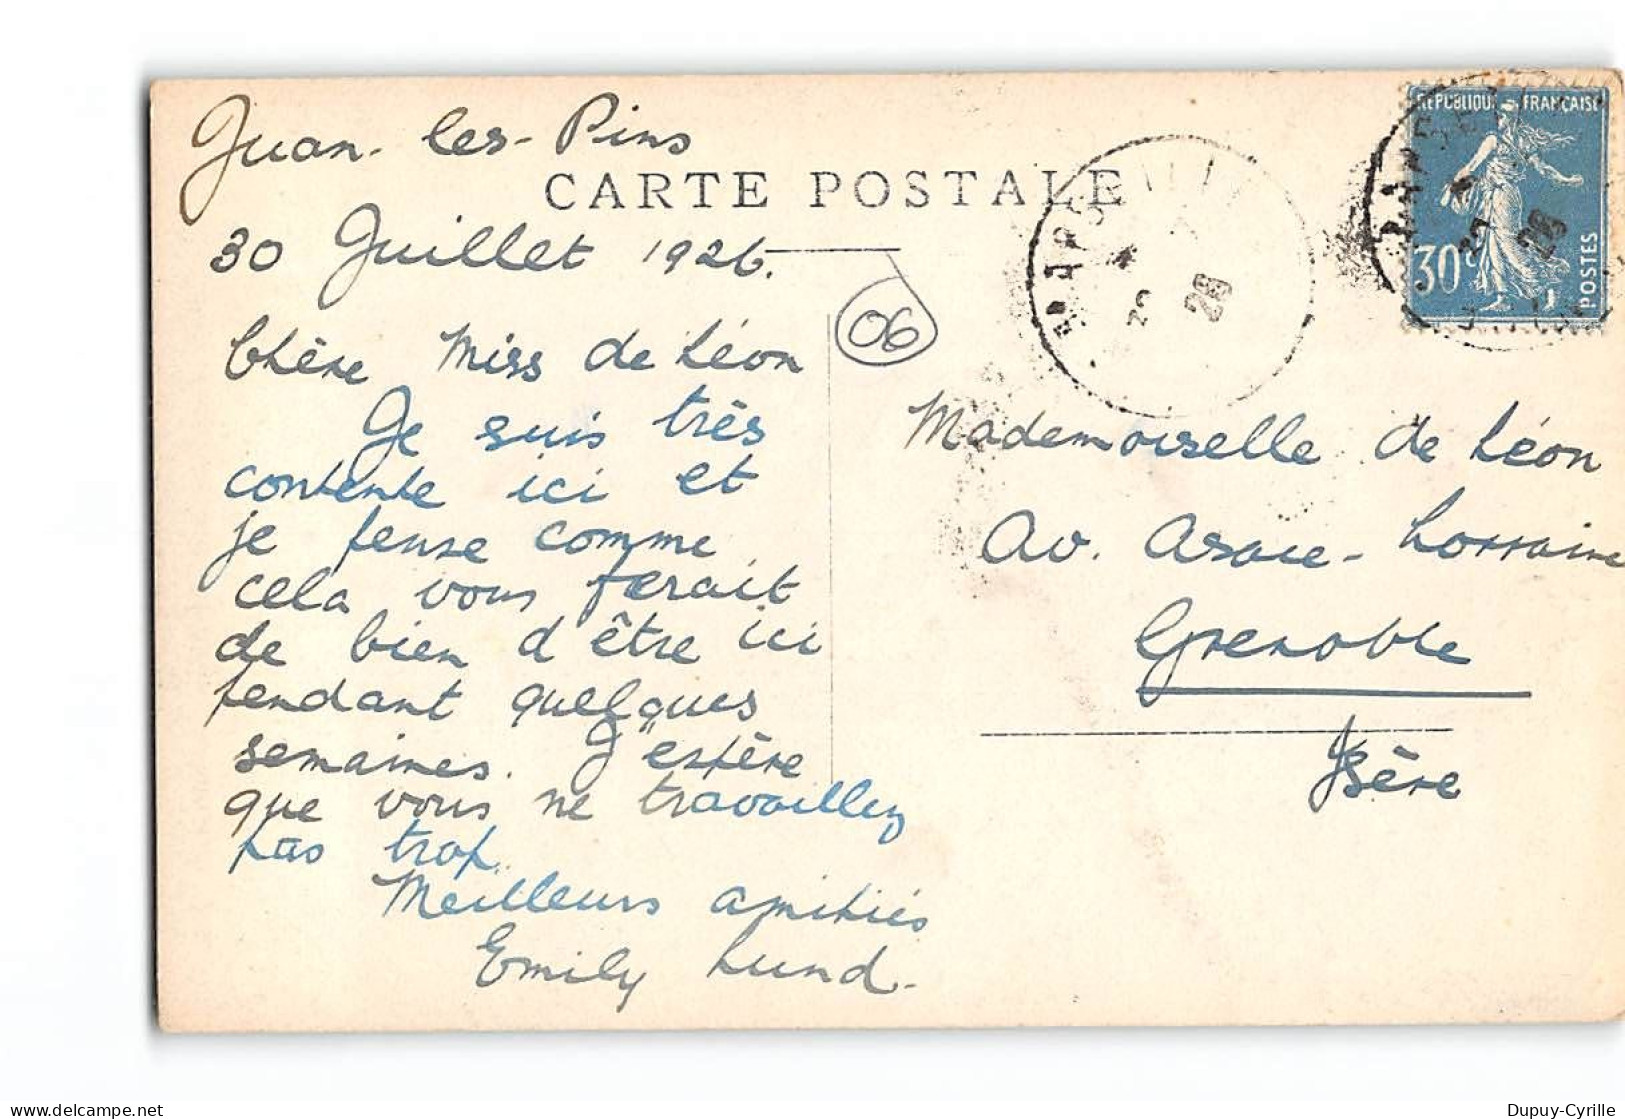 Juan-les-Pins
CARTE POSTALE
30 Juillet 1926.
06
Chère Miss de Léon
Je suis très
contente ici et
je pense comme
cela vous ferait
de bien d'être ici
pendant quelques
semaines. J'espère
que vous ne travaillez
pas trop.
Meilleurs amitiés
Emily Lund.
REPUBLIQUE FRANCAISE
30c
POSTES
28
28
Mademoiselle de Léon
Av. Alsace-Lorraine
Grenoble
Isère
delcampe.net
Dupuy-Cyrille